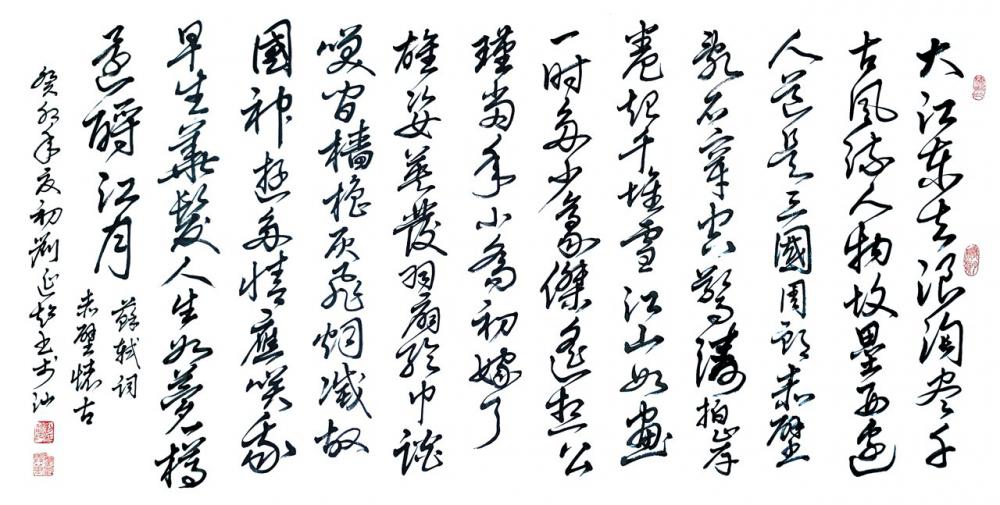 大江东去浪淘尽千
古风流人物故垒西边
人道是三國周郎赤壁
乱石穿空惊涛拍岸
卷起千堆雪江山如画
一时多少豪傑遥想公
瑾当年小乔初嫁了
雄姿英發羽扇纶巾谈
笑间檣橹灰飞烟滅故
國神游多情應笑我
早生華髮人生如夢樽
还酹江月
蘇轼词
赤壁懷古
癸卯年夏初劉延书于汕